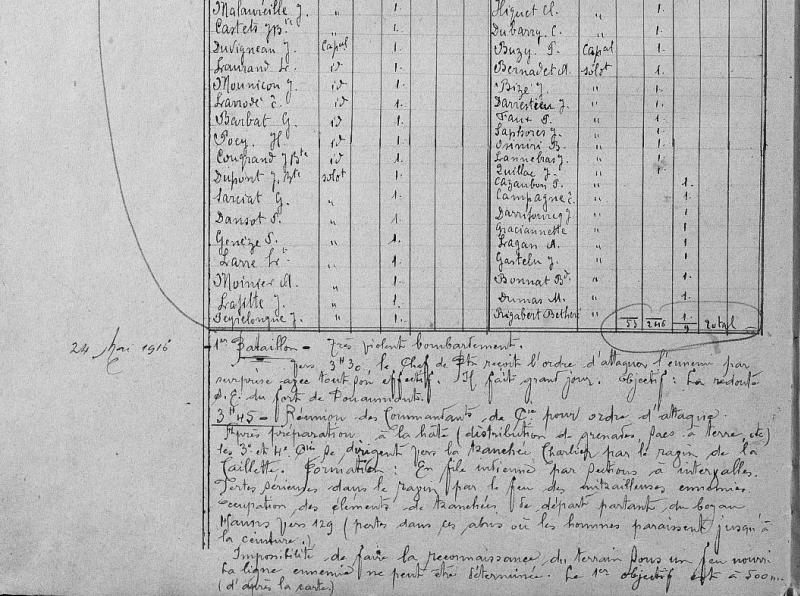 Malaureille J. " 1.
Castets J Bte " 1.
Duvigneau J. Capal 1.
Laurand Lt. id 1.
Mounicou J. id 1.
Larrodé C. id 1.
Barbat G. id 1.
Pocy H. id 1.
Cougrand J Bte id 1.
Dupont J. Bte soldt 1.
Sarciat G. " 1.
Dansot P. " 1.
Genèze P. " 1.
Larre Lt. " 1.
Moinier A. " 1.
Lafitte J. " 1.
Peyrelongue J. " 1.
Higuet Cl. " 1.
Dubarry C. " 1.
Buzy P. Capal 1.
Bernadet A. soldt 1.
Bizé J. " 1.
Darrestieu J. " 1.
Faux P. " 1.
Saphores J. " 1.
B. " 1.
Lannebras J. " 1.
Quillac J. " 1.
Cazaubon P. " 1.
Campagne C. " 1.
J " 1
Graciannette " 1
Lagan A. " 1
Gastelu J. " 1.
Bonnat Bd. " 1.
Dumas M. " 1.
Rigabert Betheri " 1.
55 246 9 total
24 Mai 1916
1er Bataillon - Très violent bombardement.
Vers 3H30, le Chef de Bto reçoit l'ordre d'attaquer l'ennemi par
surprise avec tout son effectif. Il fait grand jour. Objectif : La redoute
S.E. du fort de Douaumont.
3H45 - Réunion des Commandants de Cie pour ordre d'attaque.
Après préparation à la hâte (distribution de grenades, sacs à terre, etc)
les 3e et 4e Cie se dirigent vers la tranchée Charlier par le ravin de la
Caillette. Formation : En file indienne par sections à intervalles.
Pertes sérieuses dans le ravin par le feu des mitrailleuses ennemies.
Occupation des éléments de tranchées de départ partant du boyau
Vers 129 (pertes dans ces abris où les hommes paraissent jusqu'à
la ceinture.)
Impossibilité de faire la reconnaissance du terrain sous un feu nourri
La ligne ennemie ne peut être déterminée. Le 1er objectif est à 500m.
(d'après la carte)